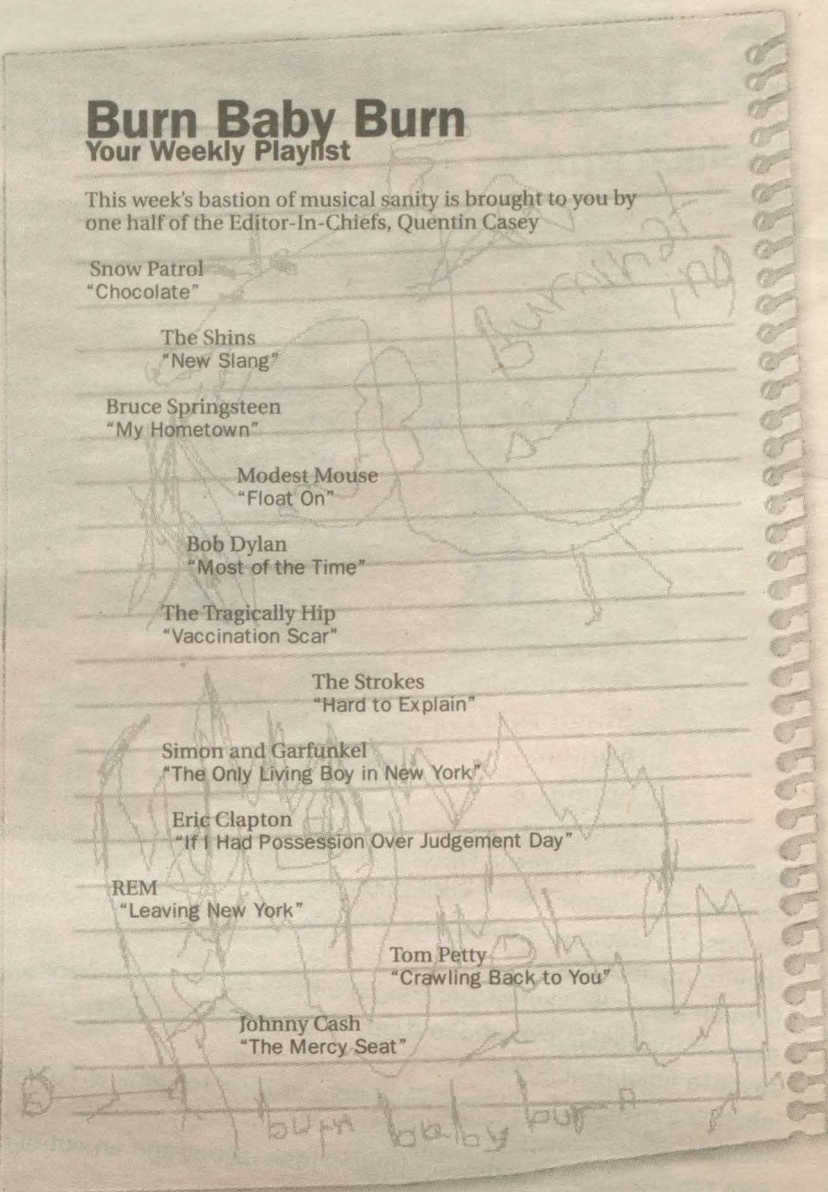 Burn Baby Burn
Your Weekly Playlist
This week's bastion of musical sanity is brought to you by
one half of the Editor-In-Chiefs, Quentin Casey
Snow Patrol
"Chocolate"
The Shins
"New Slang"
Bruce Springsteen
"My Hometown"
Modest Mouse
"Float On"
Bob Dylan
"Most of the Time"
The Tragically Hip
"Vaccination Scar"
The Strokes
"Hard to Explain"
Simon and Garfunkel
"The Only Living Boy in New York"
Eric Clapton
"If I Had Possession Over Judgement Day"
REM
"Leaving New York"
Tom Petty
"Crawling Back to You"
Johnny Cash
"The Mercy Seat"